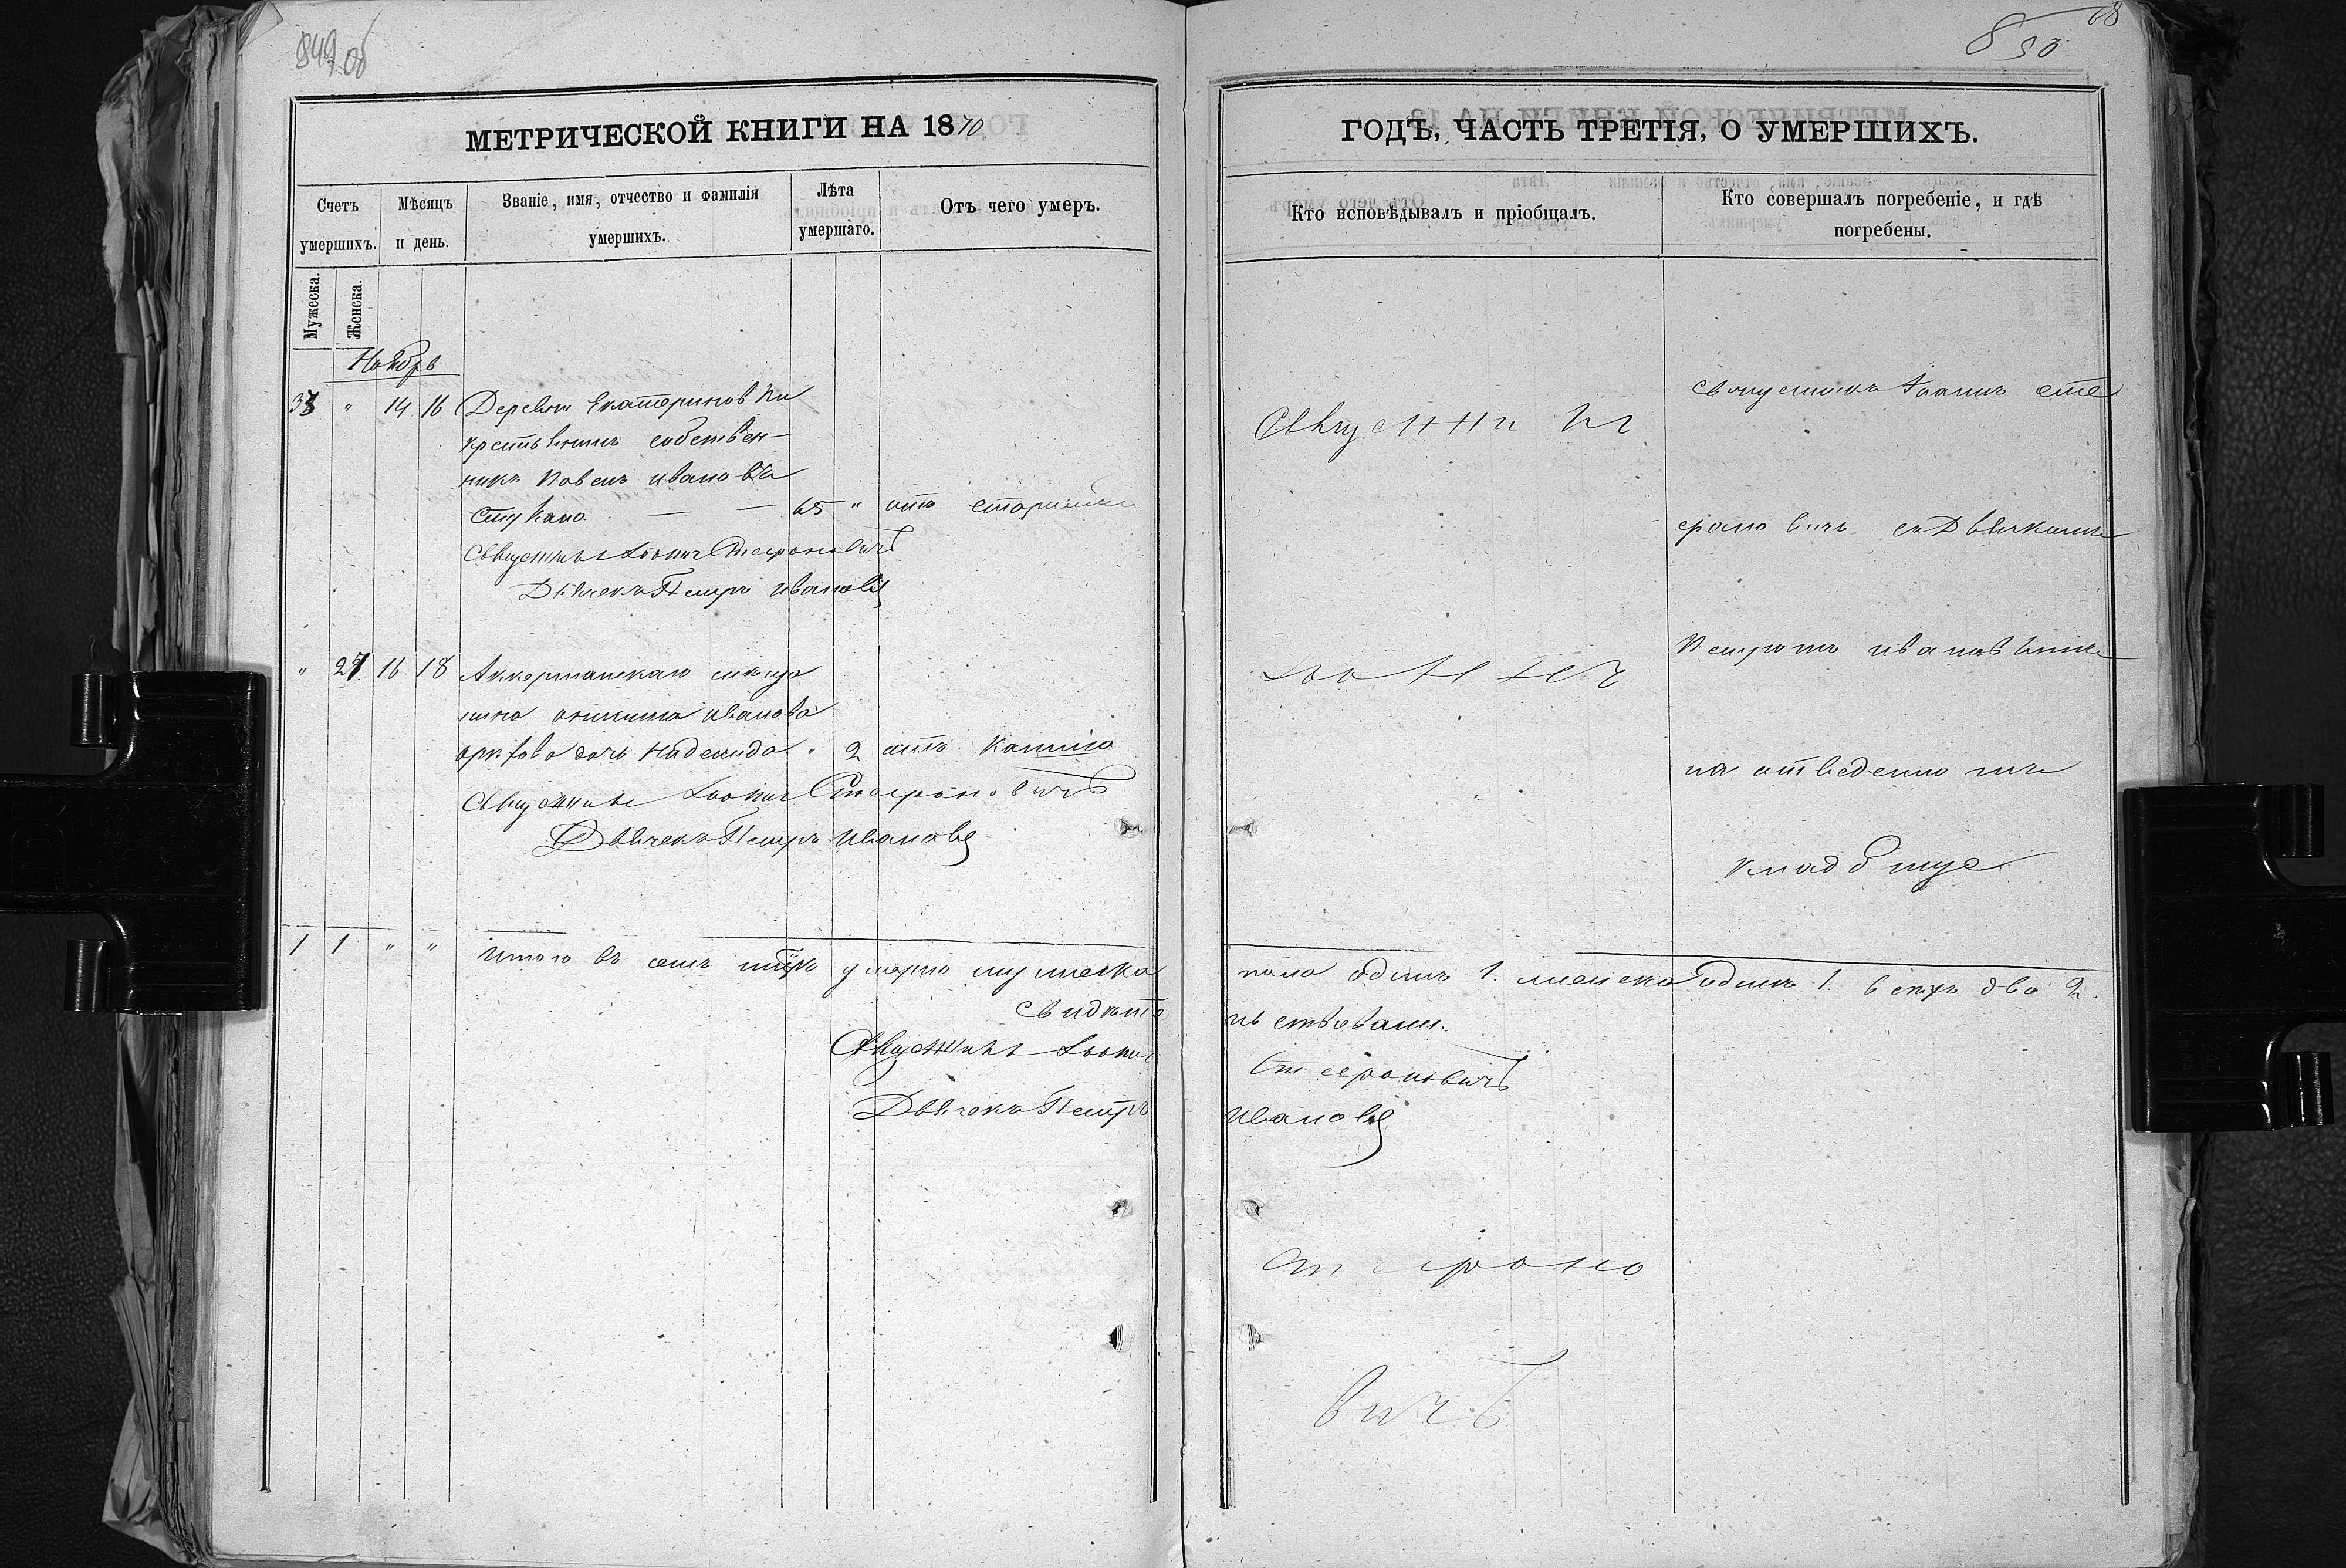 849 об
МЕТРИЧЕСКОЙ КНИГИ НА 1870
Счетъ умершихъ.
Мѣсяцъ и день.
Званіе, имя, отчество и фамилія умершихъ.
Лѣта умершаго.
Отъ чего умеръ.
Мужеска.
Женска.
Ноябрь
33 " 14 16 Деревни Екатериновки
крестьянинъ собствен-
никъ Павелъ Иванова
Стукано — — 65 " отъ старости
Священникъ Іоаннъ Стефановичъ
Дьячекъ Петръ Ивановъ
" 27 16 18 Аккерманскаго мѣща
нина Иванова
дочь Надежда " 2 отъ кашлю
Священникъ Іоаннъ Стефановичъ
Дьячекъ Петръ Ивановъ
1 1 " " Итого въ семъ умерло мужеска
свидѣте
Священникъ Іоаннъ
Дьячекъ Петръ
850
68
ГОДЪ, ЧАСТЬ ТРЕТІЯ, О УМЕРШИХЪ.
Кто исповѣдывалъ и пріобщалъ.
Кто совершалъ погребеніе, и гдѣ погребены.
Священникъ
Іоаннъ
Стефано
вичъ
Священникъ Іоаннъ Сте
фановичъ съ Дьячкомъ
Петромъ Ивановымъ
на отведенномъ
кладбище
пола одинъ 1. женска одна 1. всѣхъ два 2.
льствовали.
Стефановичъ
Ивановъ